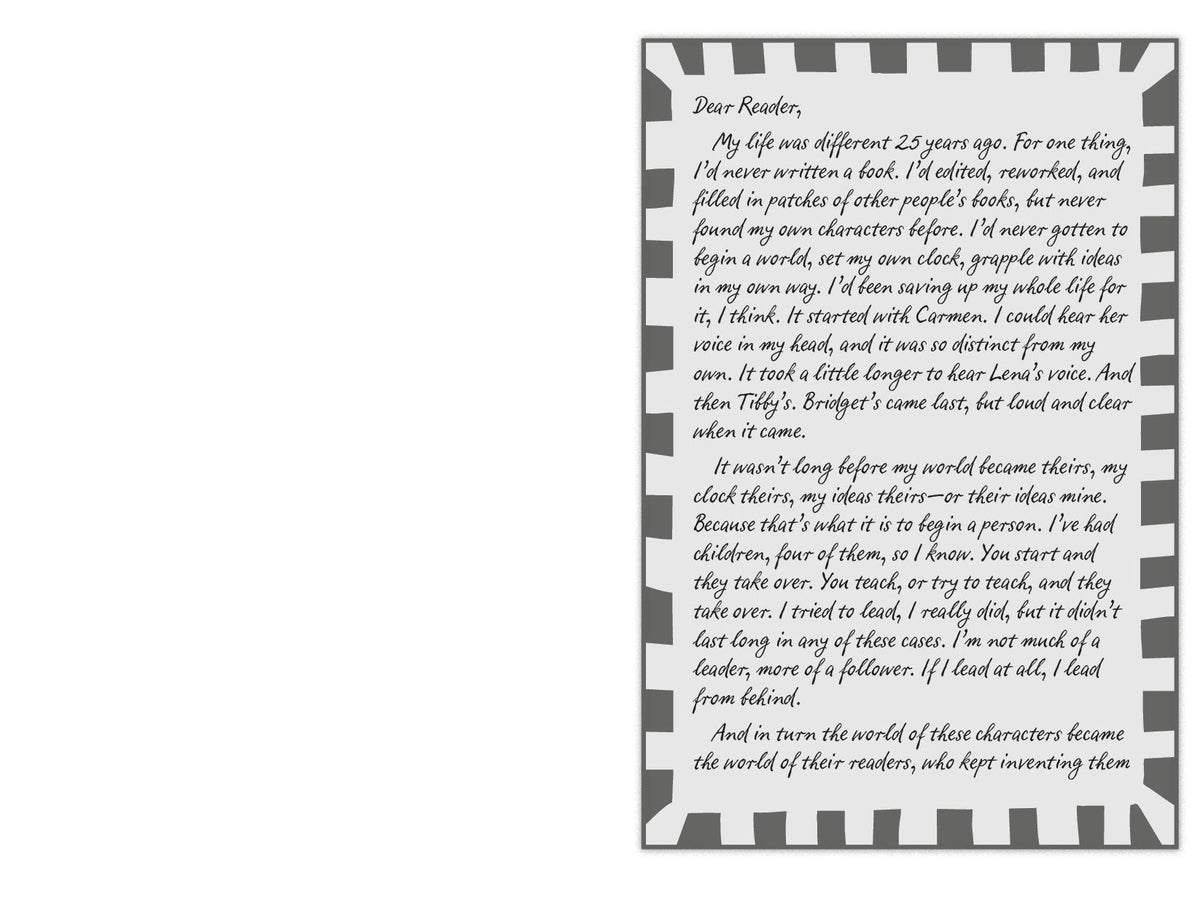 Dear Reader,
My life was different 25 years ago. For one thing,
I'd never written a book. I'd edited, reworked, and
filled in patches of other people's books, but never
found my own characters before. I'd never gotten to
begin a world, set my own clock, grapple with ideas
in my own way. I'd been saving up my whole life for
it, I think. It started with Carmen. I could hear her
voice in my head, and it was so distinct from my
own. It took a little longer to hear Lena's voice. And
then Tibby's. Bridget's came last, but loud and clear
when it came.
It wasn't long before my world became theirs, my
clock theirs, my ideas theirs—or their ideas mine.
Because that's what it is to begin a person. I've had
children, four of them, so I know. You start and
they take over. You teach, or try to teach, and they
take over. I tried to lead, I really did, but it didn't
last long in any of these cases. I'm not much of a
leader, more of a follower. If I lead at all, I lead
from behind.
And in turn the world of these characters became
the world of their readers, who kept inventing them